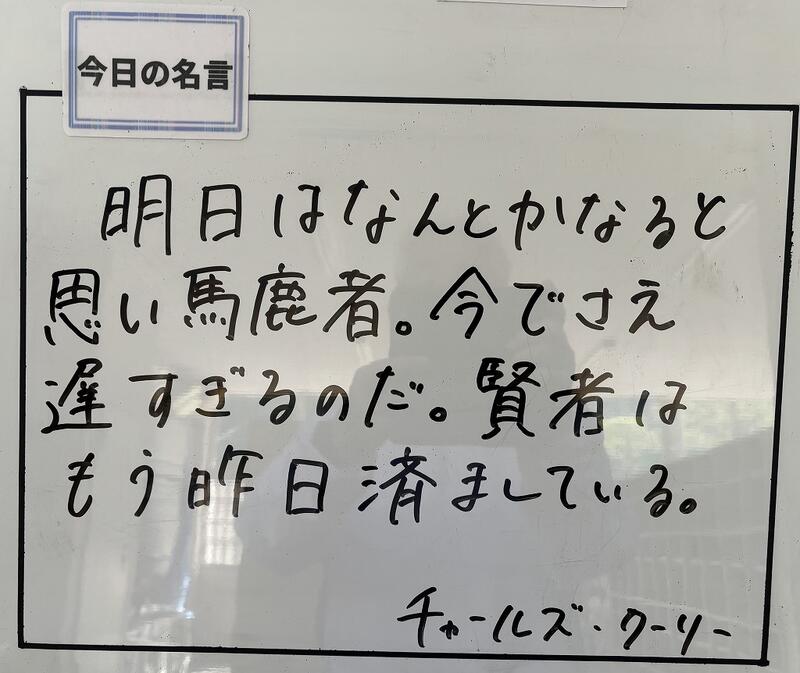 今日の名言
明日はなんとかなると
思い馬鹿者。今でさえ
遅すぎるのだ。賢者は
もう昨日済ましている。
チャールズ・クーリー